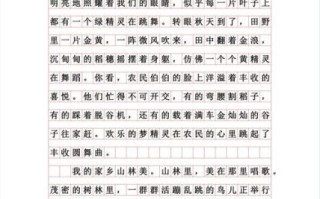 明亮地照耀着我们的眼睛，似乎每一片叶子上
都有一个绿精灵在跳舞。转眼秋天到了，田野
里一片金黄，一阵微风吹来。田中翻着金浪，
沉甸甸的稻穗摇摆着身躯，仿佛一个个黄精灵
在舞蹈。你看，农民伯伯的脸上洋溢着丰收的
喜悦。他们忙得不可开交，有的弯腰割稻子，
有的踩着脱谷机，还有的载着满车金灿灿的谷
子往家赶。欢乐的梦精灵在农民的心里跳起了
丰收圆舞曲。
我的家乡山林美。山林里，美在那里唱歌。
茂密的树林里，一群群活蹦乱跳的鸟儿正举行